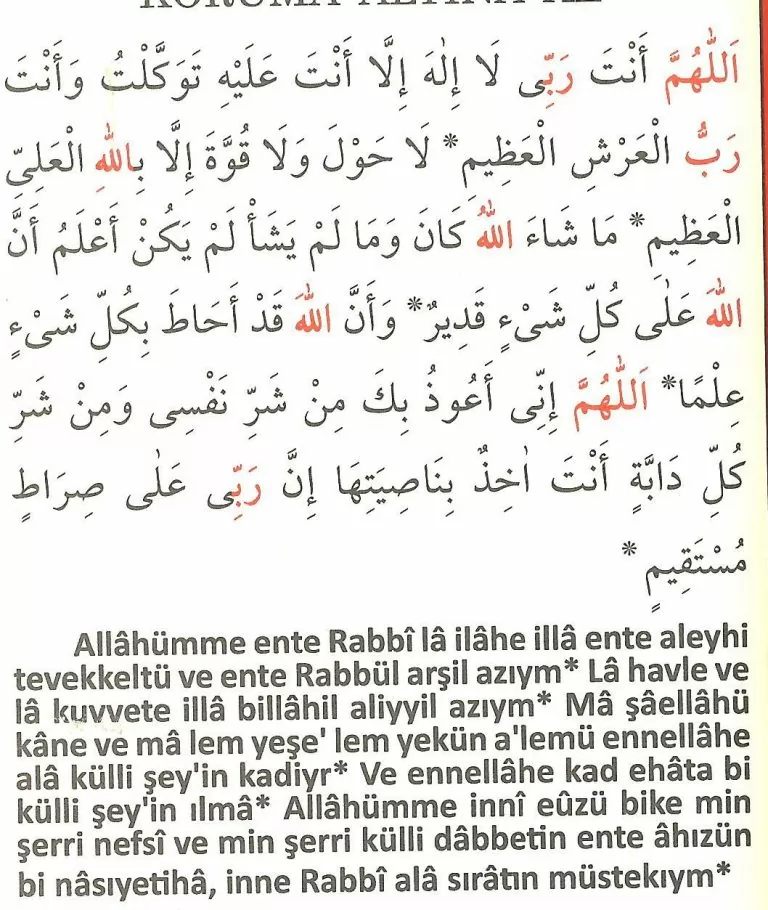 KORUMA ALTINA AL
اَللّٰهُمَّ أَنْتَ رَبِّى لَا إِلٰهَ إِلَّا أَنْتَ عَلَيْهِ تَوَكَّلْتُ وَأَنْتَ
رَبُّ الْعَرْشِ الْعَظِيمِ* لَا حَوْلَ وَلَا قُوَّةَ إِلَّا بِاللّٰهِ الْعَلِىِّ
الْعَظِيمِ* مَا شَاءَ اللّٰهُ كَانَ وَمَا لَمْ يَشَأْ لَمْ يَكُنْ أَعْلَمُ أَنَّ
اللّٰهَ عَلٰى كُلِّ شَىْءٍ قَدِيرٌ* وَأَنَّ اللّٰهَ قَدْ أَحَاطَ بِكُلِّ شَىْءٍ
عِلْمًا* اَللّٰهُمَّ إِنِّى أَعُوذُ بِكَ مِنْ شَرِّ نَفْسِى وَمِنْ شَرِّ
كُلِّ دَابَّةٍ أَنْتَ اٰخِذٌ بِنَاصِيَتِهَا إِنَّ رَبِّى عَلٰى صِرَاطٍ
مُسْتَقِيمٍ*
Allâhümme ente Rabbî lâ ilâhe illâ ente aleyhi
tevekkeltü ve ente Rabbül arşil azıym* Lâ havle ve
lâ kuvvete illâ billâhil aliyyil azıym* Mâ şâellâhü
kâne ve mâ lem yeşe' lem yekün a'lemü ennellâhe
alâ külli şey'in kadiyr* Ve ennellâhe kad ehâta bi
külli şey'in ılmâ* Allâhümme innî eûzü bike min
şerri nefsî ve min şerri külli dâbbetin ente âhızün
bi nâsıyetihâ, inne Rabbî alâ sırâtın müstekıym*